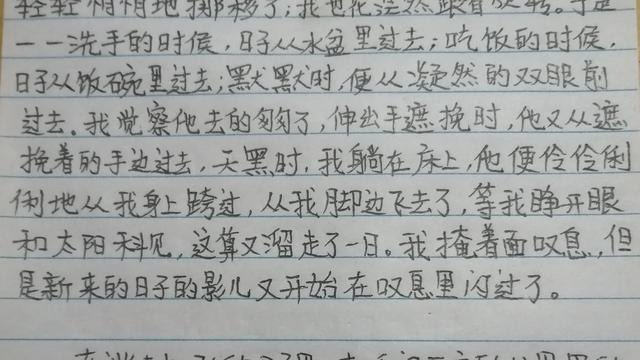 轻轻悄悄地挪移了；我也茫茫然跟着旋转。于是
——洗手的时候，日子从水盆里过去；吃饭的时候，
日子从饭碗里过去；默默时，便从凝然的双眼前
过去。我觉察他去的匆匆了，伸出手遮挽时，他又从遮
挽着的手边过去，天黑时，我躺在床上，他便伶伶俐
俐地从我身上跨过，从我脚边飞去了，等我睁开眼
和太阳再见，这算又溜走了一日。我掩着面叹息，但
是新来的日子的影儿又开始在叹息里闪过了。